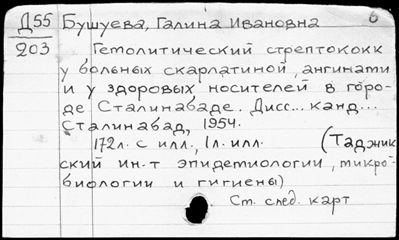 Д55 Бушуева, Галина Ивановна б
203
Гемолитический стрептококк
у больных скарлатиной, ангинами
и у здоровых носителей в горо-
де Сталинабаде. Дисс... канд...
Сталинабад, 1954.
172л. с илл., 1л. илл. (Таджик
ский ин-т эпидемиологии, микро-
биологии и гигиены)
См. след. карт